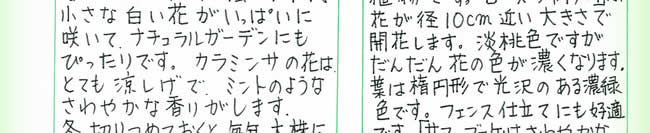 小さな白い花がいっぱいに
咲いて、ナチュラルガーデンにも
ぴったりです。カラミンサの花は、
とても涼しげで、ミントのような
さわやかな香りがします。
冬、切りつめておくと、毎年、大株に
花が径10cm近い大きさで
開花します。淡桃色ですが
だんだん花の色が濃くなります。
葉は楕円形で光沢のある濃緑
色です。フェンス仕立てにも好適